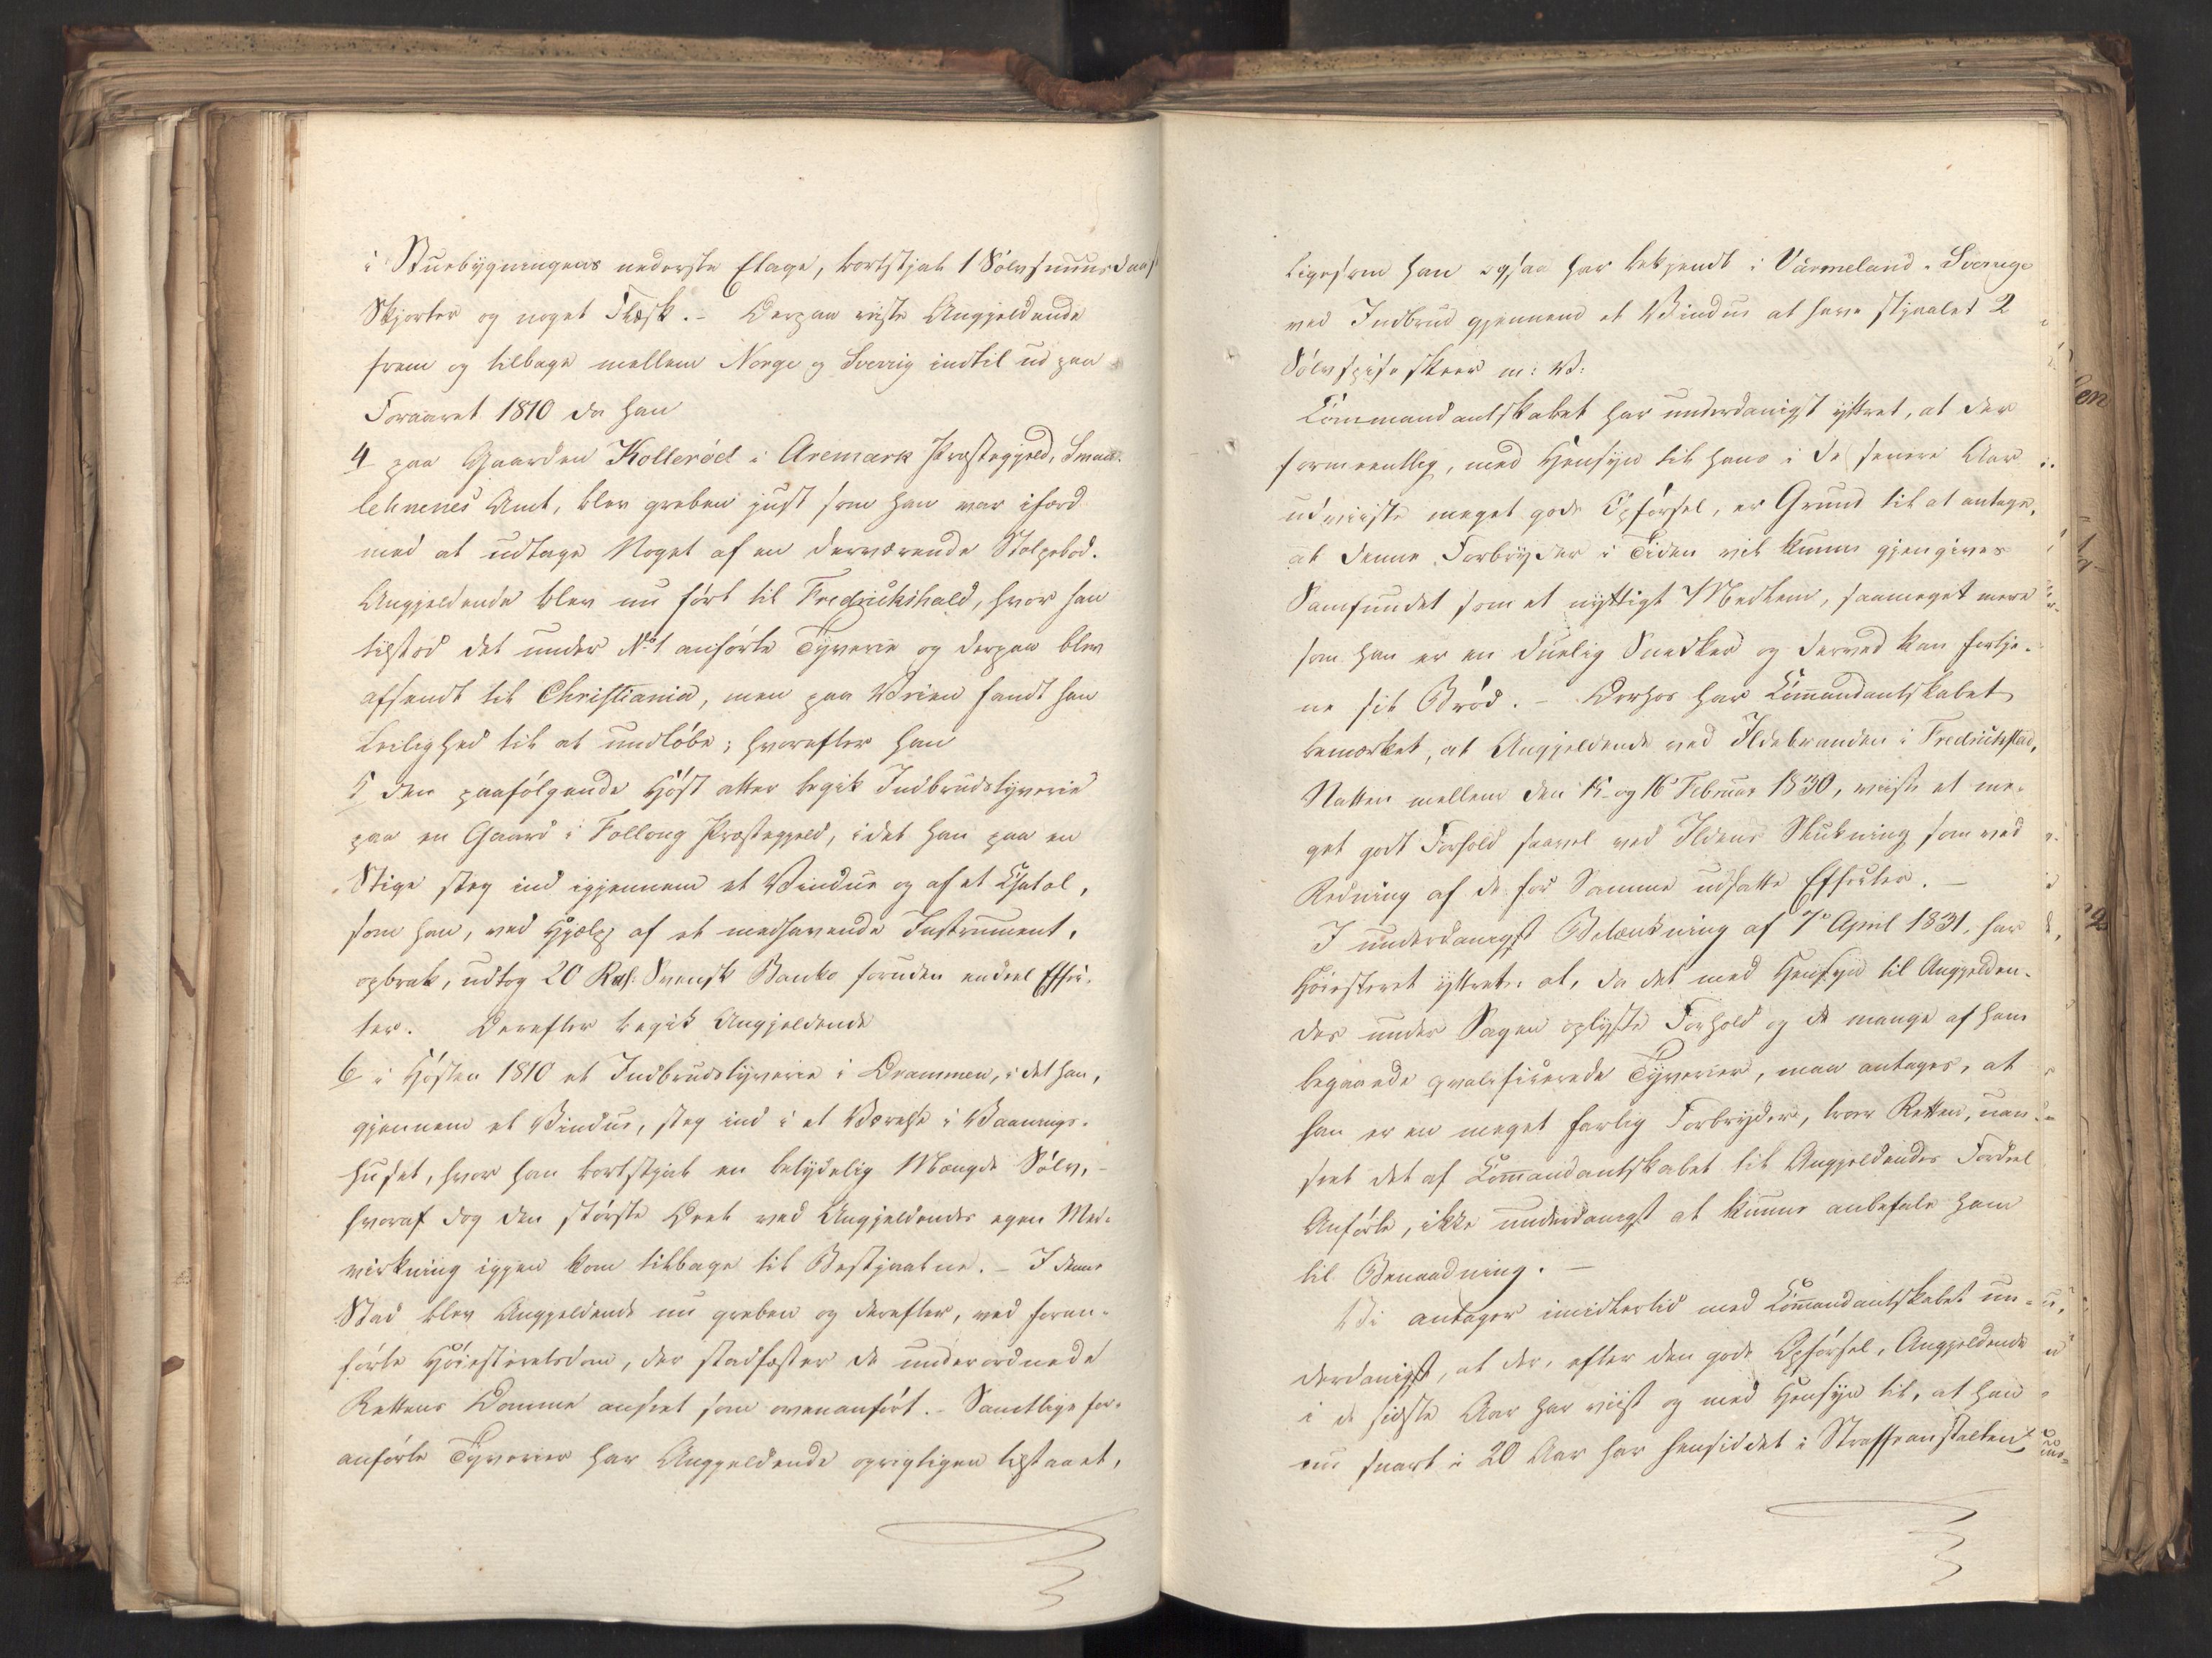 i Stuebygningens nederste Etage, bortstjal 1 Sølvsnuusdaas
Skjorter og noget Flesk. – Derpaa reiste Angjeldende
frem og tilbage mellem Norge og Sverrig indtil ud paa
Foraaret 1810 da han
4 paa Gaarden Kolleröd i Aremark Præstegjeld, Smaa-
lehnenes Amt, blev greben just som han var ifærd
med at udtage Noget af en derværende Stolpebod.
Angjeldende blev nu fört til Fredrikshald, hvor han
tilstod det under No 1 anförte Tyverie og derpaa blev
afsendt til Christiania, men paa Veien fandt han
Leilighed til at undlöbe; hvorefter han
5 den paafölgende Höst atter begik Indbrudstyverie
paa en Gaard i Folloug Præstegjeld, idet han paa en
Stige steg ind igjennem et Vindue og af et Chatol,
som han, ved Hjelp af et medhavende Instrument,
opbrak, udtog 20 Rd. Svensk Banko foruden endeel Effec-
ter. Derefter begik Angjeldende
6 i Hösten 1810 et Indbrudstyverie i Drammen, idet han,
gjennem et Vindue, steg ind i et Værelse i Vaanings-
huset, hvor han bortstjal en betydelig Mængde Sölv,
hvoraf dog den störste Deel ved Angjeldendes egen Med-
virkning igjen kom tilbage til Bestjaalne. – I denne
Stad blev Angjeldende nu greben og derefter, ved foran-
förte Höiesteretsdom, der stadfæster de underordnede
Retters Domme anseet som ovenanfört. – Samtlige for-
anförte Tyverier har Angjeldende oprigtigen tilstaaet,
ligesom han ogsaa har bekjendt i Värmeland i Sverige
ved Indbrud gjennem et Vindue at have stjaalet 2
Sölvspiseskeer m: V:
Commandantskabet har underdanigst yttret, at der
formeentlig, med Hensyn til hans i de senere Aar
udviiste meget gode Opförsel, er Grund til at antage,
at denne Forbryder i Tiden vil kunne gjengives
Samfundet som et nyttigt Medlem, saameget mere
som han er en duelig Snedker og derved kan fortje-
ne sit Bröd. – Derhos har Commandantskabet
bemærket, at Angjeldende ved Ildebranden i Fredrikstad,
Natten mellem den 15 og 16 Februar 1830, viiste et me-
get godt Forhold saavel ved Ildens Slukning som ved
Redning af de for Samme udsatte Effecter. –
I underdanigst Betænkning af 7de April 1831, har
Höiesteret yttret: at, da det med Hensyn til Angjelden-
des under Sagen oplyste Forhold og de mange af ham
begaaede qvalificerede Tyverier, maa antages, at
han er en meget farlig Forbryder, troer Retten, uan-
seet det af Commandantskabet til Angjeldendes Fordeel
Anförte, ikke underdanigst at kunne anbefale ham
til Benaadning. –
Vi antager imidlertid med Commandantskabet un-
derdanigst, at der, efter den gode Opförsel, Angjeldende
i de sidste Aar har viist og med Hensyn til, at han
nu snart i 20 Aar har hensiddet i Straffeanstalten